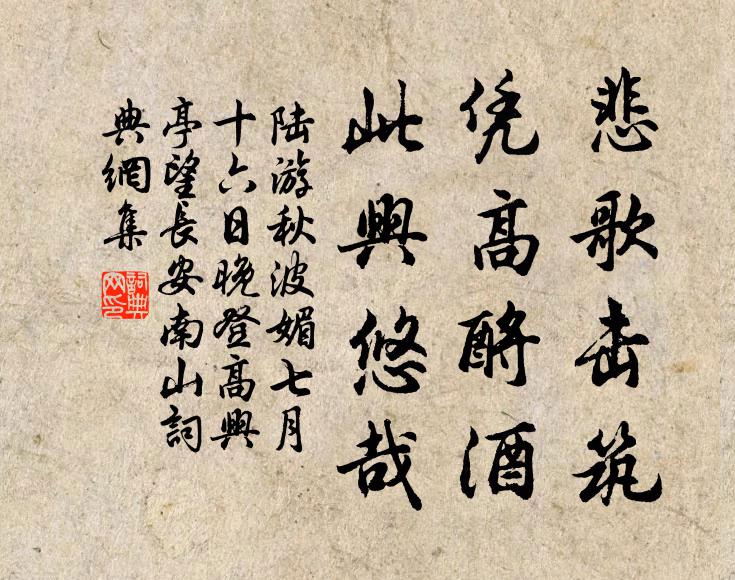 悲歌击筑
凭高酹酒
此興悠哉
陆游秋波媚七月
十六日晚登高興
亭望長安南山詞
典網集
詞典
网印